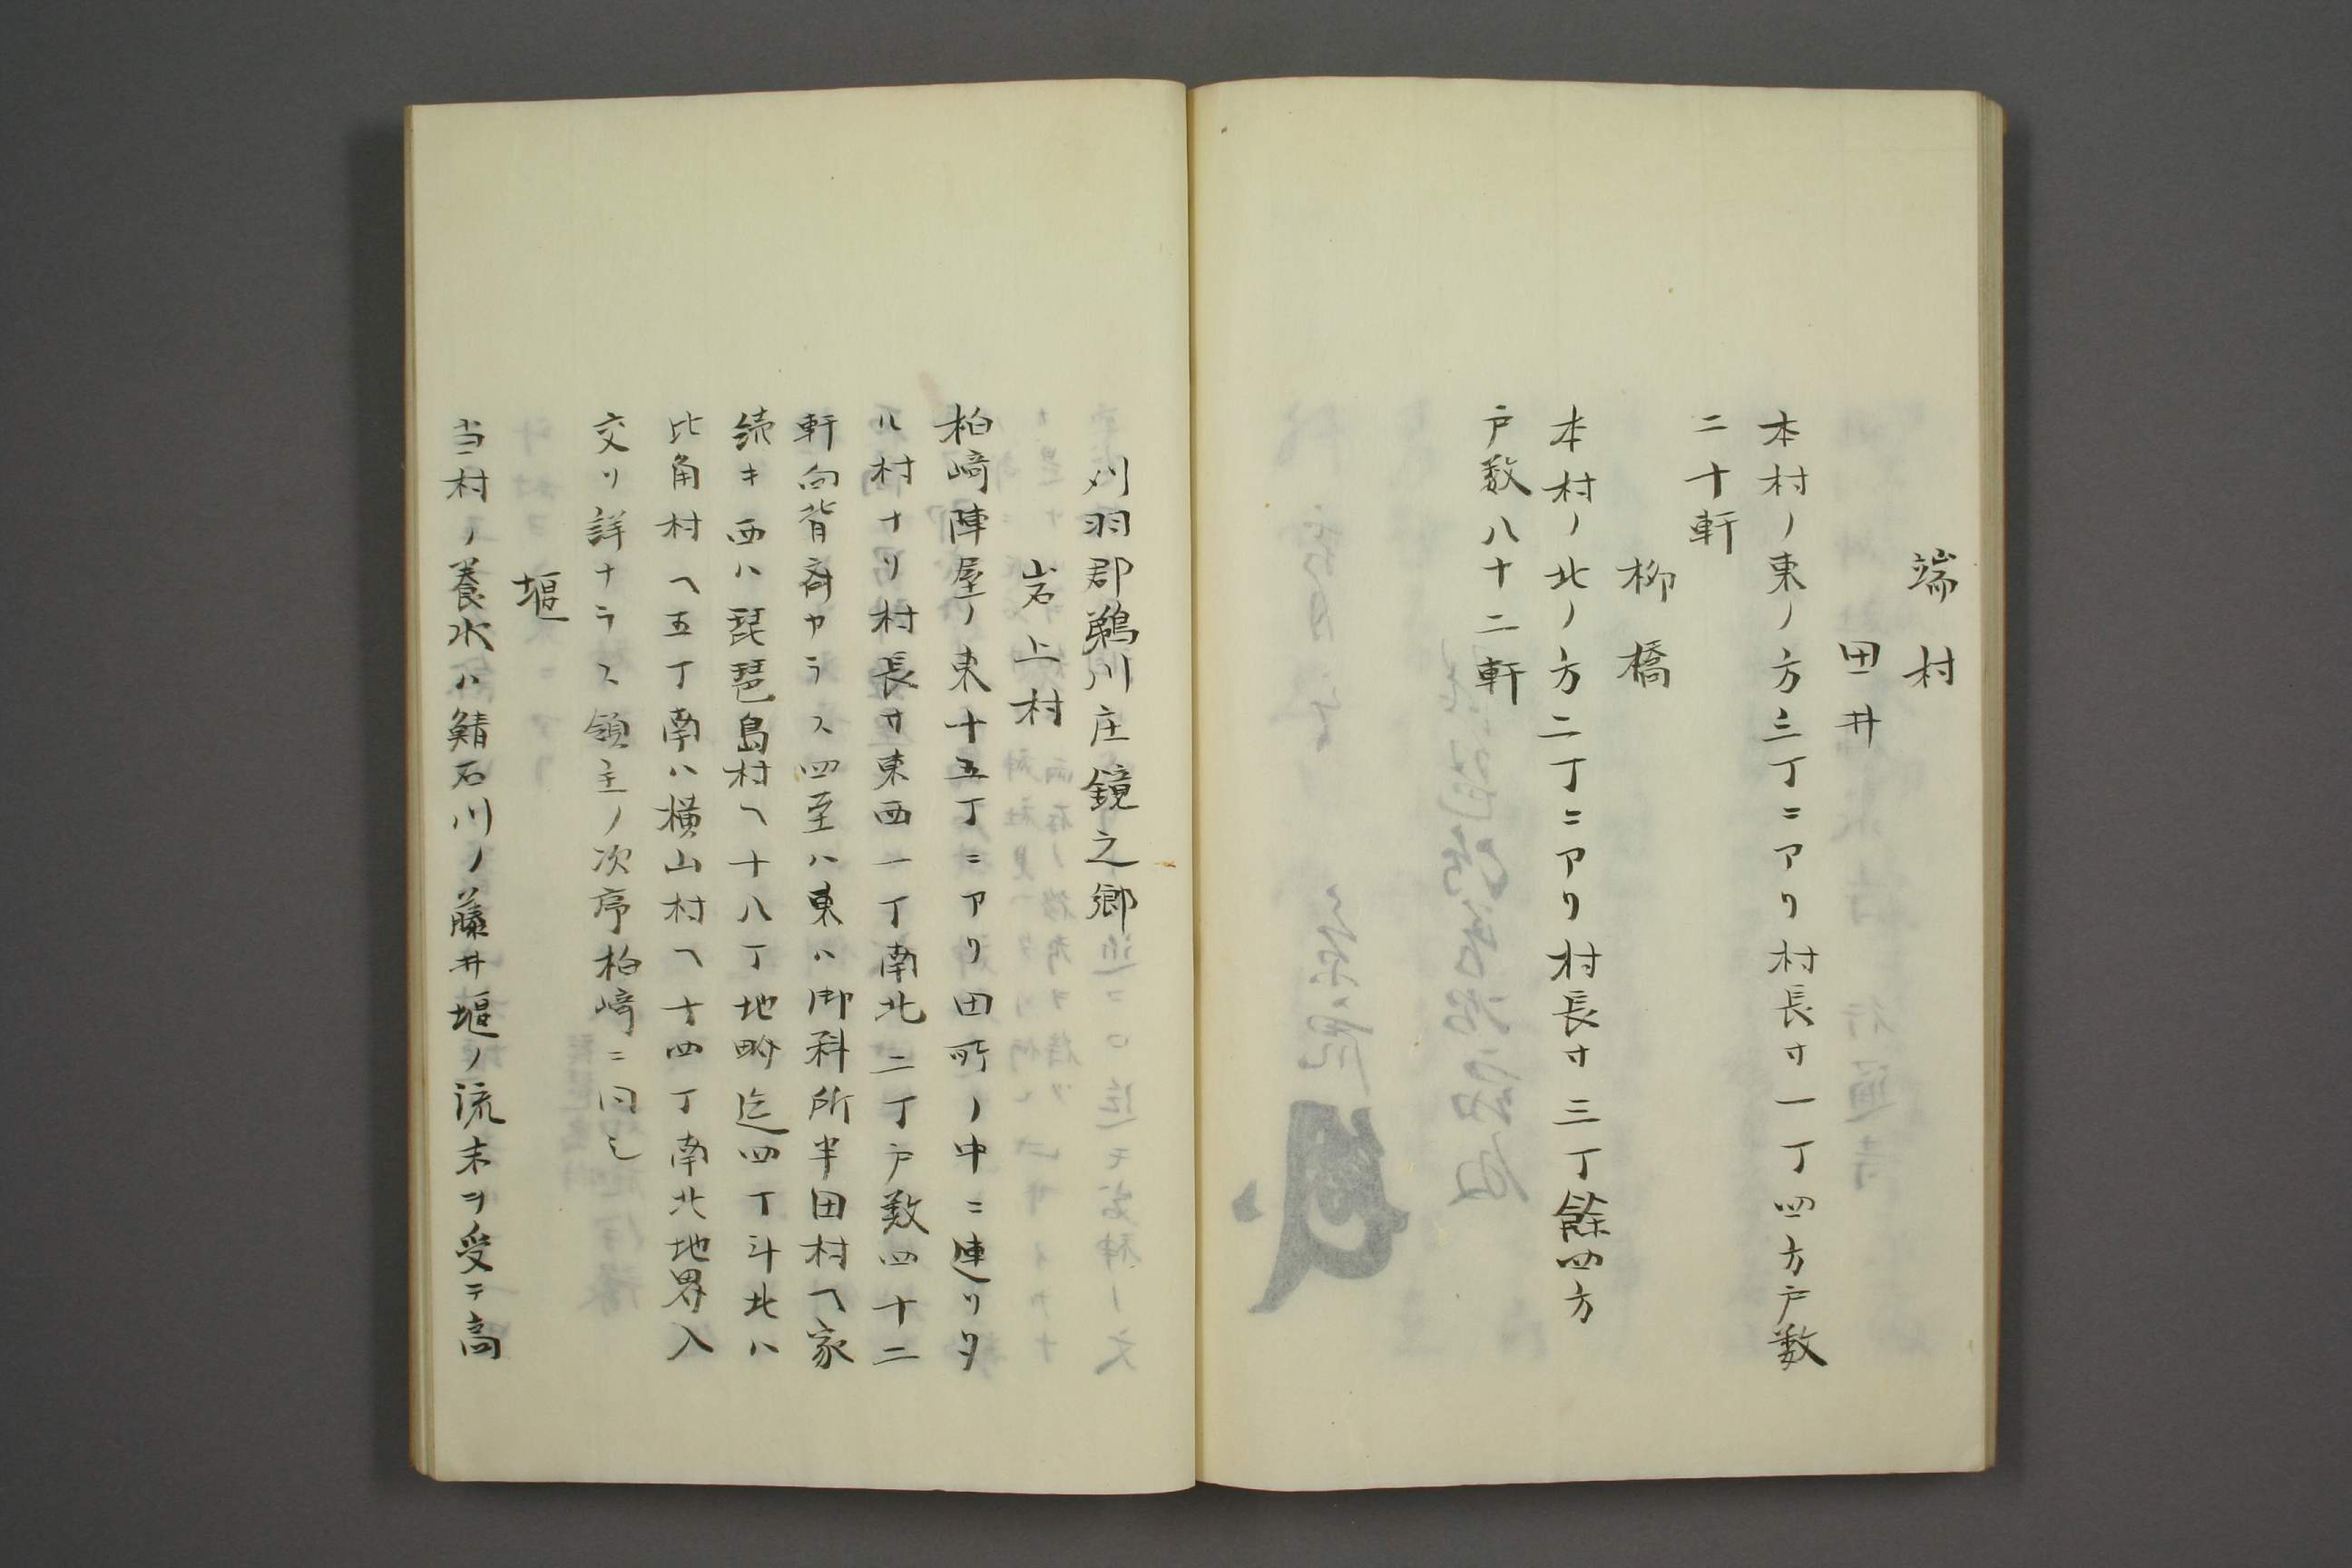 端村
田井
本村ノ東ノ方三丁ニアリ村長サ一丁四方戸数
二十軒
柳橋
本村ノ北ノ方二丁ニアリ村長サ三丁餘四方
戸数八十二軒
刈羽郡鵜川庄鏡之郷
岩上村
柏﨑陣屋ノ東十五丁ニアリ田所ノ中ニ連リタ
ル村ナリ村長サ東西一丁南北二丁戸数四十二
軒向背斉カラス四至ハ東ハ御料所半田村ヘ家
続キ西ハ琵琶島村ヘ十八丁地界迄四丁斗北ハ
比角村ヘ五丁南ハ横山村ヘ十四丁南北地界入
交リ詳ナラス領主ノ次序柏﨑ニ同シ
堰
当村ノ養水ハ鯖石川ノ藤井堰ノ流末ヲ受テ高